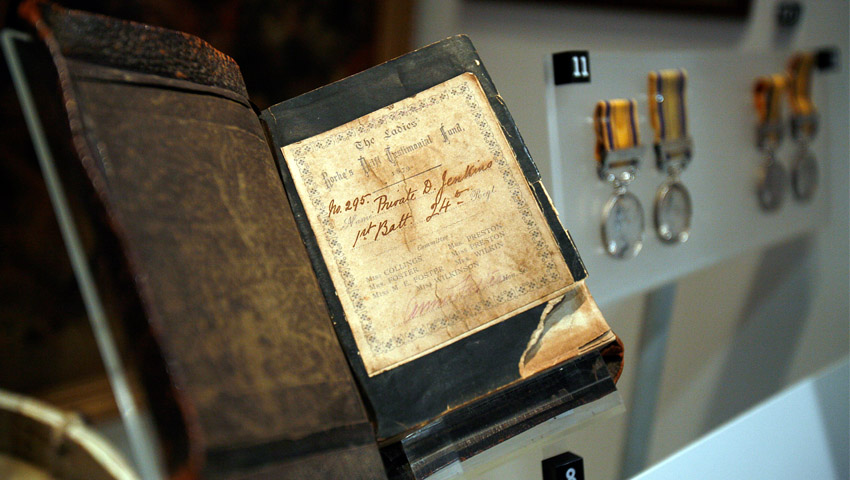 The Ladies'
Rorke's Drift Testimonial Fund.
No. 295. Private D. Jenkins
Name
1st Batt. 24th Regt.
Committee
Miss COLLINGS Mrs. PRESTON
Mrs. FOSTER Miss PRESTON
Miss M. E. FOSTER Miss WILSON
Miss WILKINSON
11
8